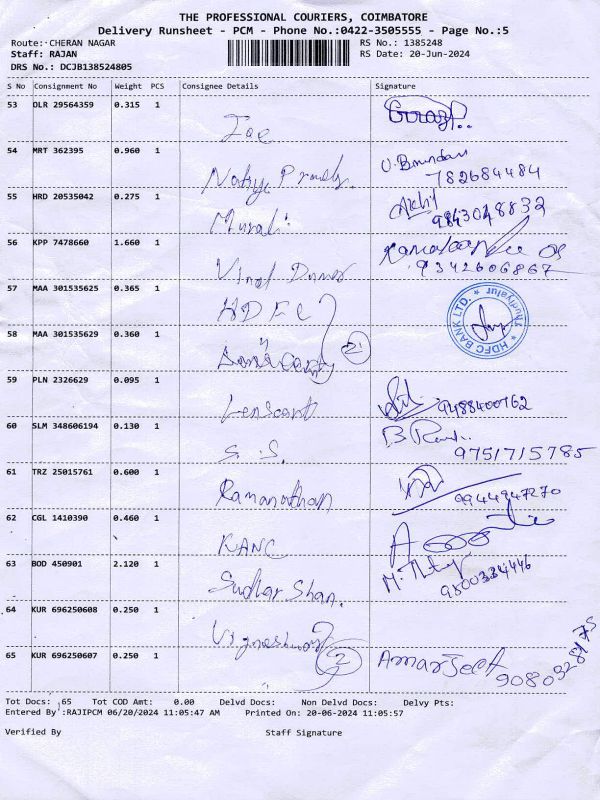 THE PROFESSIONAL COURIERS, COIMBATORE
Delivery Runsheet - PCM - Phone No.:0422-3505555 - Page No.:5
Route: CHERAN NAGAR RS No.: 1385248
Staff: RAJAN RS Date: 20-Jun-2024
DRS No.: DCJB138524805
S No Consignment No Weight PCS Consignee Details Signature
53 DLR 29564359 0.315 1
54 MRT 362395 0.960 1
782684484
55 HRD 20535042 0.275 1 Murali
9843048832
56 KPP 7478660 1.660 1
9342606867
57 MAA 301535625 0.365 1 HDFC
HDFC BANK LTD.
58 MAA 301535629 0.360 1 2
59 PLN 2326629 0.095 1 Lenscart 9488400762
60 SLM 348606194 0.130 1 S. S.
9751715785
61 TRZ 25015761 0.600 1 Ramanathan
9944947270
62 CGL 1410390 0.460 1 KANC
63 BOD 450901 2.120 1 Sudharshan.
9500334446
64 KUR 696250608 0.250 1 Vigneshwar
65 KUR 696250607 0.250 1 2 Amarjeet
9080328175
Tot Docs: 65 Tot COD Amt: 0.00 Delvd Docs: Non Delvd Docs: Delvy Pts:
Entered By :RAJIPCM 06/20/2024 11:05:47 AM Printed On: 20-06-2024 11:05:57
Verified By Staff Signature